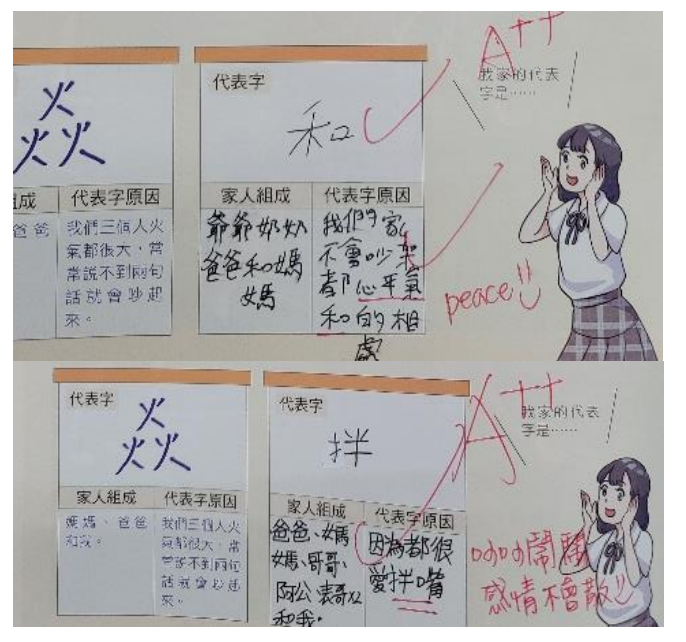 焱
組成
代表字原因
爸爸
我們三個人火
氣都很大，常
常說不到兩句
話就會吵起
來。
代表字
和
家人組成
代表字原因
爺爺奶奶
爸爸和媽
媽
我們家
不會吵架
都心平氣
和的相
處
A++
我家的代表
字是……
peace
代表字
焱
家人組成
代表字原因
媽媽、爸爸
和我。
我們三個人火
氣都很大，常
常說不到兩句
話就會吵起
來。
代表字
拌
家人組成
代表字原因
爸爸、媽
媽、哥哥、
阿公、表哥x2
和我。
因為都很
愛拌嘴
A++
我家的代表
字是……
吵吵鬧鬧
感情不會散